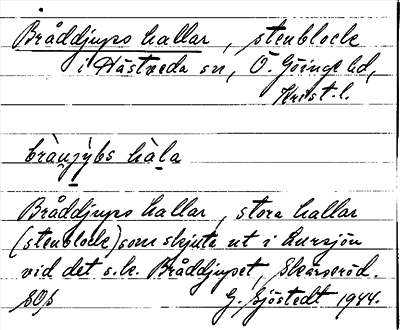 Bråddjups hallar, stenblock
i Hästveda sn, Ö. Göinge hd,
Krist. l.
bràu̯jỳbs hàla
Bråddjups hallar, stora hallar
(stenblock) som skjuta ut i Lursjön
vid det s.k. Bråddjupet, Skärsröd.
G. Sjöstedt 1944.